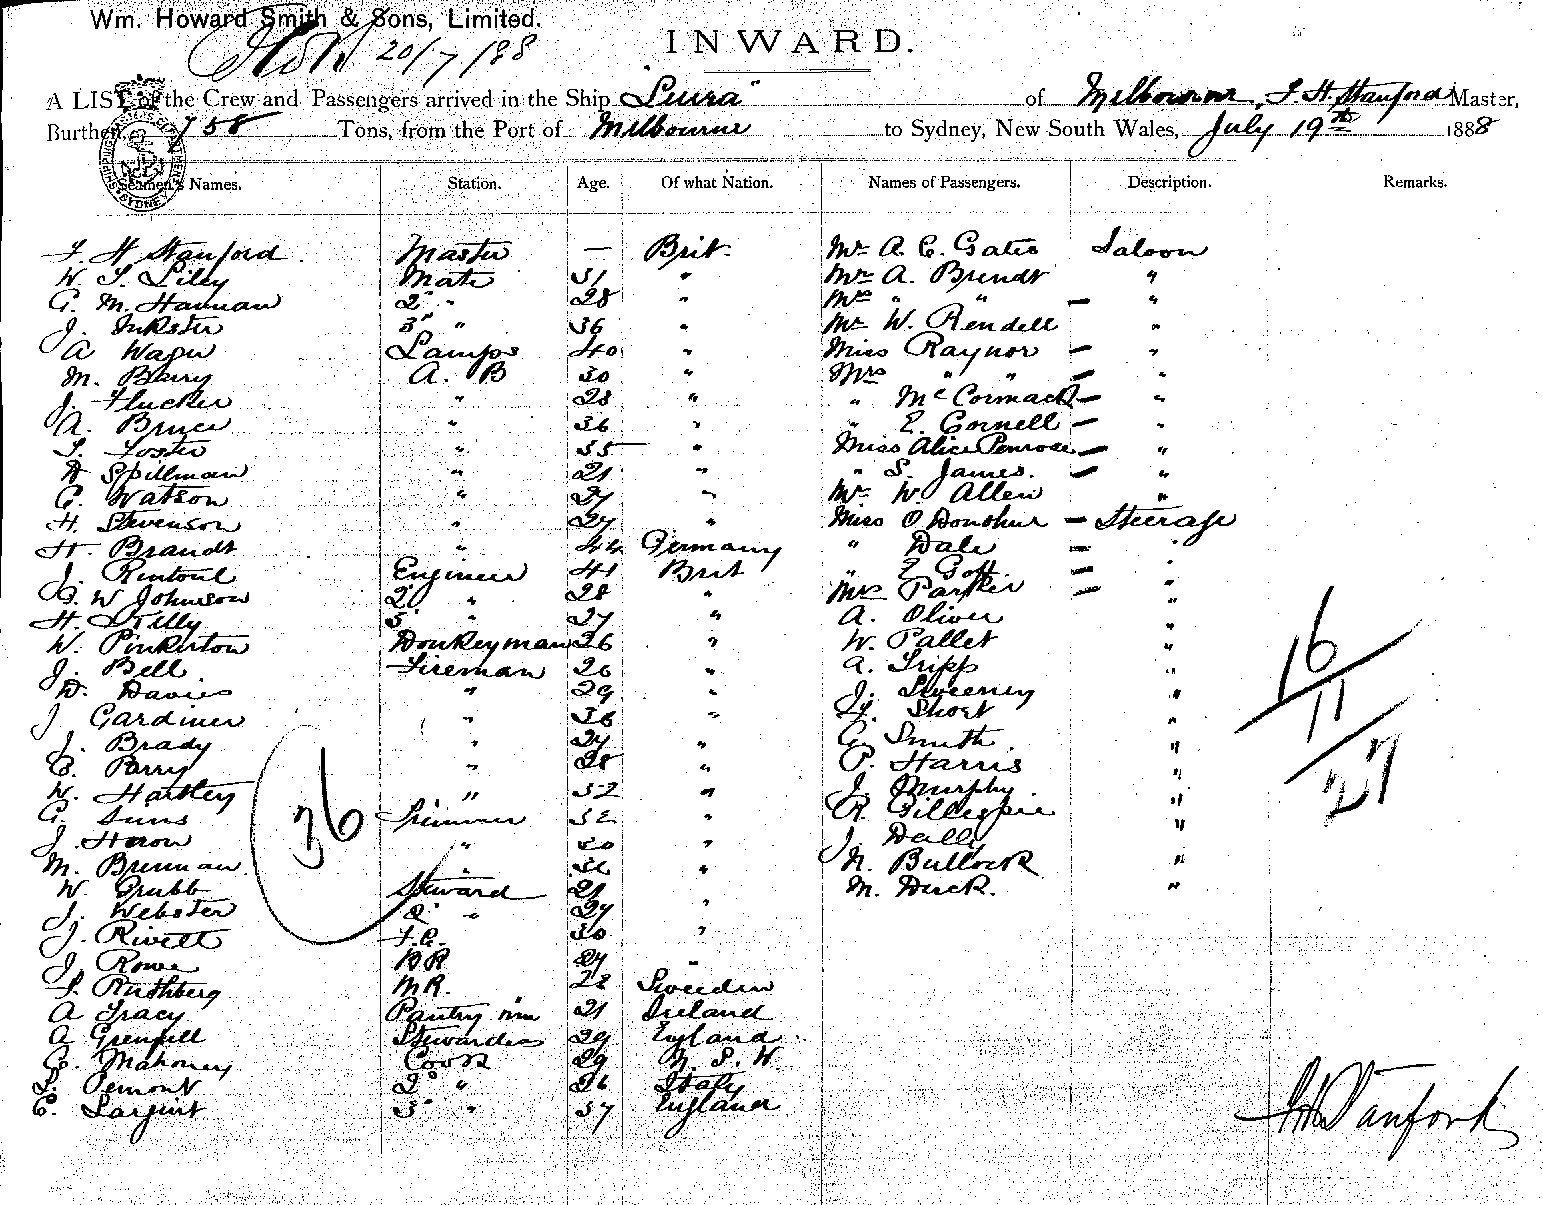 Wm. Howard Smith & Sons, Limited.
20/7/88
INWARD.
A LIST of the Crew and Passengers arrived in the Ship "Leura" of Melbourne, F. H. Stanford Master,
Burthen, 758 Tons, from the Port of Melbourne to Sydney, New South Wales, July 19th 1888
Seamen's Names. Station. Age. Of what Nation. Names of Passengers. Description. Remarks.
F. H Stanford Master — Brit. Mr A. C. Gates Saloon
W. S. Liley Mate 31 " Mr A. Brendt "
G. M. Hannan 2" " 28 " Mrs " " — "
J. Inkster 3" " 36 " Mr W. Rendell "
A Wager Lamps 40 " Miss Raynor — "
M. Barry A. B 30 " Mrs " " — "
J. Flucker " 28 " " McCormack — "
A. Bruce " 36 " " E. Connell — "
S. Foster " 35 " Miss Alice Penrose — "
Spillman " 21 " " S. James. — "
G. Watson " 27 " Mr W Allen "
H. Stevenson " 27 " Miss O Donohue — Steerage
H. Brandt " 44 Germany " Dale — "
J. Rintoul Engineer 41 Brit " E Goff — "
G. W Johnson 2" " 28 " Mrs Parker — "
H. Lilly 3" " 27 " A. Oliver "
W. Pinkerton Donkeyman 26 " W. Pallet "
J. Bell Fireman 26 " A. Tripp "
D. Davies " 29 " J. Sweeney "
J Gardiner " 36 " Short "
J. Brady " 27 " G. Smith "
C. Parry " 28 " P. Harris "
W. Hartley " 32 " J. Murphy "
G. Sims Trimmer 32 " R. Gillespie "
J. Heron " 20 " J. Dally "
M. Brennan " " N. Bullock "
W. Grubb Steward 21 M. Duck. "
J. Webster 2" " 27 "
J. Rivett F.C. 30 "
J. Rowe BR 27 "
F. Ruthberg MR. 22 Sweeden
A Tracy Pantry man 21 Ireland
A Grenfell Stewardess 29 England
C. Mahoney Cook 29 N. S. W
Pemont 2" " 26 Italy
C. Sargint 3" " 37 England
36
16
11
27
F H Stanford